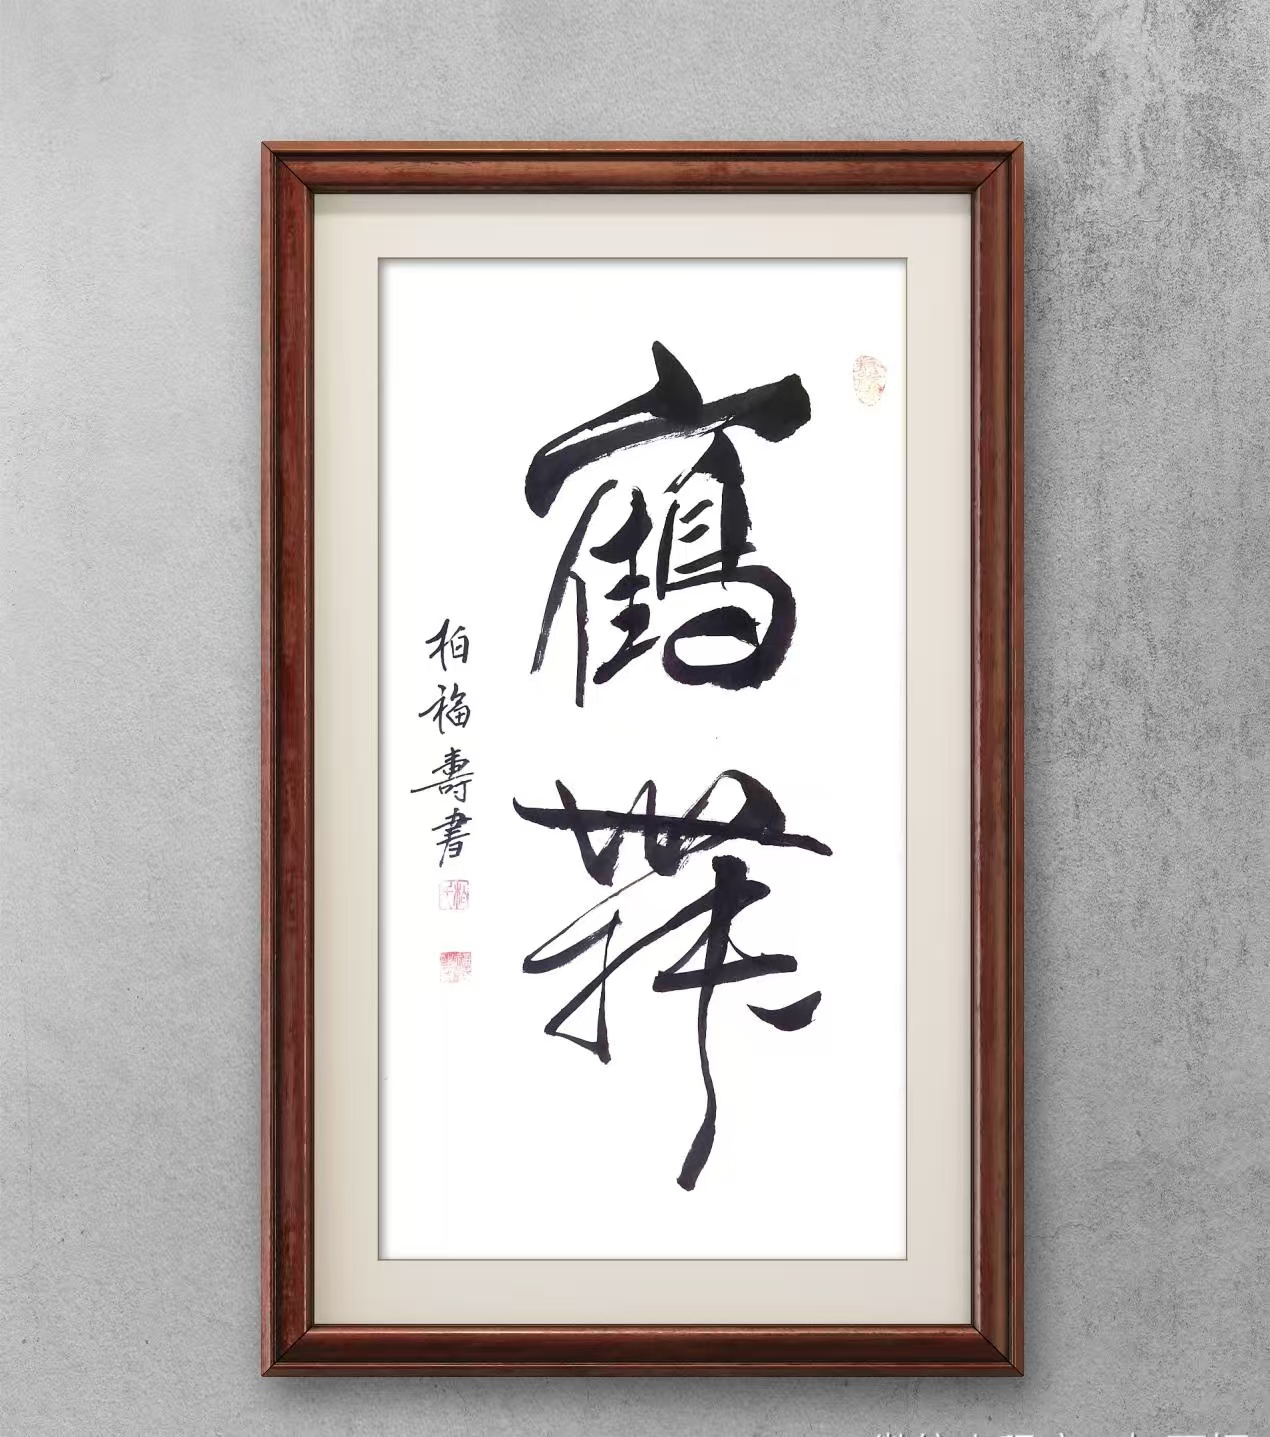 鶴舞
柏福壽書